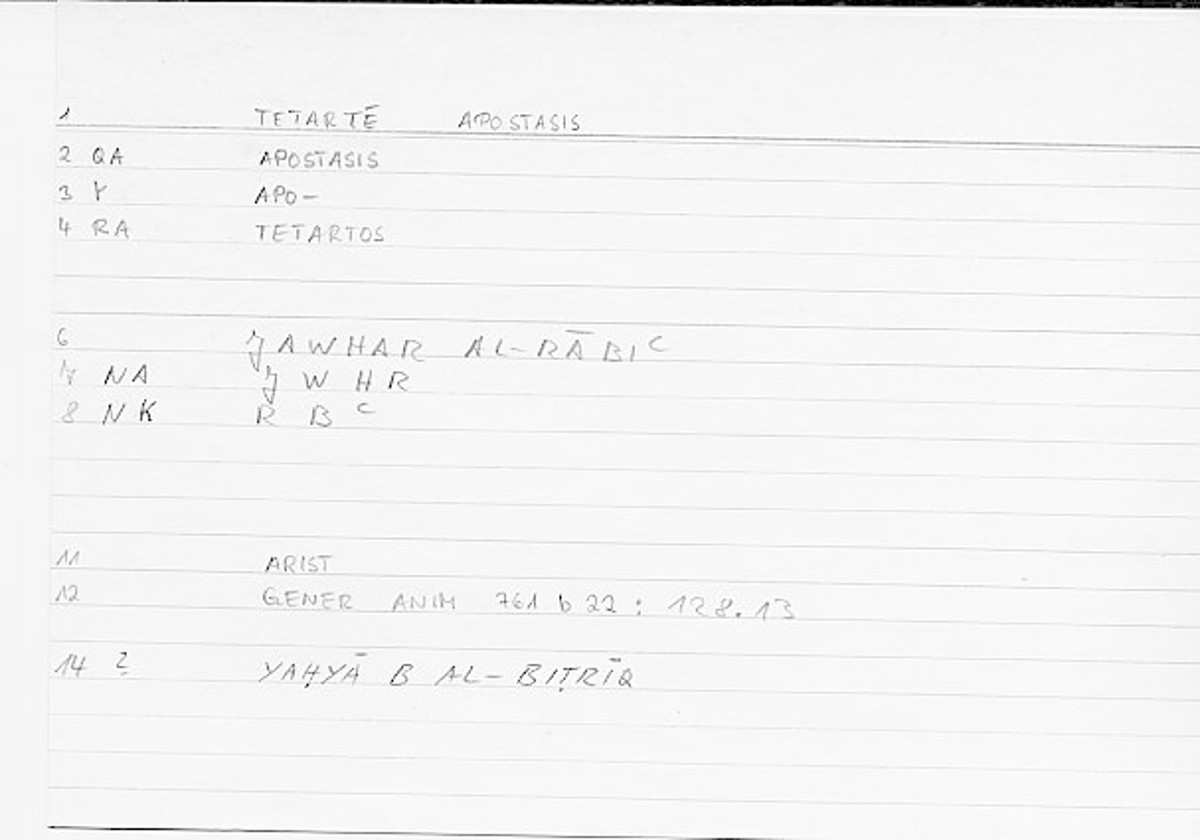 1 TETARTĒ APOSTASIS
2 QA APOSTASIS
3 Y APO-
4 RA TETARTOS
6 ǦAWHAR AL-RĀBIʿ
7 NA Ǧ W H R
8 NK R B ʿ
11 ARIST
12 GENER ANIM 761 b 22 : 128.13
14 ? YAḤYĀ B AL-BIṬRĪQ